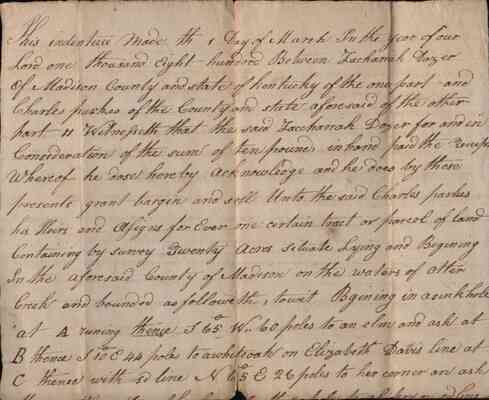 This indenture Made th 1 Day of March In the year of our
Lord one thousand Eight hundred Between Zachariah Dozer
Of Madison County and state of Kentucky of the one part and
Charles parkes of the County and state aforesaid of the other
part 11 Witnesseth that the said Zacchariah Dozer for and in
Consideration of the sum of ten pounds in hand paid the
Whereof he dose hereby Acknowledge and he does by these
presents grant bargin and sell Unto the said Charles parkes
his Heirs and Asigns for Ever one certain tract or parcel of land
Containing by survey Twenty Acres situate Lying and Bigining
In the aforesaid County of Madison on the waters of otter
Creek and bounded as followeth, towit Bgining in a sinkhole
at A runing thence S 65° W. 60 poles to an elm and ash at
B thence S 10° E 44 poles to a whiteoak on Elizabeth Davis line at
C thence with sd line N 65 E 26 poles to her corner an ash